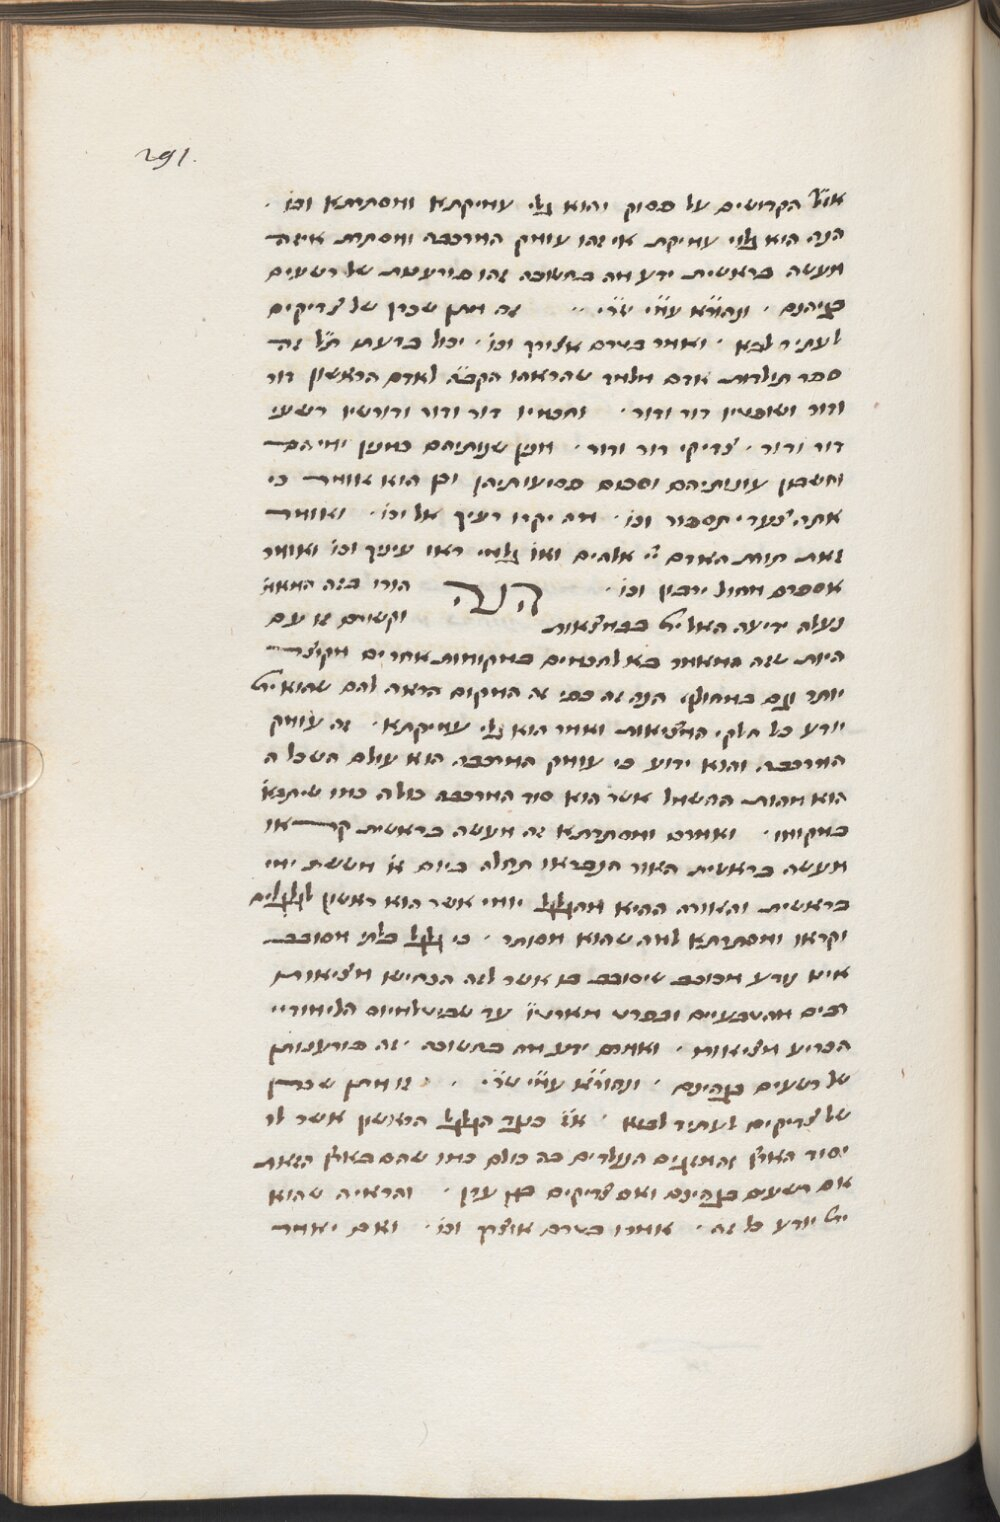 291.
הקדושים על פסוק והוא גלי עמיקתא ומסתרתא וכו' .
הנה הוא גלוי עמיקת אי זהו עומק המרכבה ומסתרת איזה
מעשה בראשית ידע מה בחשוכה זהו פורענות של רשעים
בגיהנם . ונהורא עמיה שרי .. זה מתן שכרן של צדיקים
לעתיד לבא . ואומר בטרם אצורך וכו' . יכול בדעת ת"ל זה
ספר תולדות אדם מלמד שהראהו הקב"ה לאדם הראשון דור
ודור ושופטיו דור ודור . וחכמיו דור ודור ודורשיו רשעי
דור ודור . צדיקי דור ודור . מנין שנותיהם כמנין ימיהם
וחשבון עונותיהם וסכום פסיעותיהן וכן הוא אומר כי
אתה צעדי תספור וכו' . מה יקרו רעיך אל וכו' . ואומר
זאת תורת האדם יי אלהים ואו' גלמי ראו עיניך וכו' ואומר
אספרם מחול ירבון וכו' . הנה הורו בזה המאמ'
נעלה ידיעה האל ית' בנמצאות וקשרים זו עם
היות שזה המאמר בא לחכמים במקומות אחרים מקוצר
יותר וגם במחולף הנה זה כפי זה המקום הראה להם שהוא ית'
יודע כל חלקי המציאות ואומר הוא גלי עמיקתא . זה עומק
המרכבה והוא ידוע כי עומק המרכבה הוא עולם השכל ה
הוא מהות החשמל אשר הוא סוד המרכבה כולה כמו שיתבא'
במקומו . ואומרם ומסתרתא זה מעשה בראשית קראו
מעשה בראשית האור הנבראו תחלה ביום א' מששת ימי
בראשית והאורה ההיא מהגלגל יומי אשר הוא ראשון לגלגלים
וקראו ומסתרתא למה שהוא מסותר . כי גלגל בלתי מסובב
אינו נודע מכוכב שיסובב בו אשר לזה הכחישו מציאותו
רבים מהטבעיים ובפרט מארסטו עד שבטלמיוס הלימודיי
הכריע מציאותו . ואומרם ידע מה בחשוכה . זה פורענותן
של רשעים בגהינם . ונהורא עמיה שרי . . זו מתן שכרן
של צדיקים לעתיד לבא . כנגד הגלגל הראשון אשר לו
יסוד הארץ והמזגים הנולדים בה כולם כמו שהם בארץ הזאת
אם רשעים בגהינם ואם צדיקים בגן עדן . והראיה שהוא
ית' יודע כל זה . אומרו בטרם אוצרך וכו' . ואם יאמר